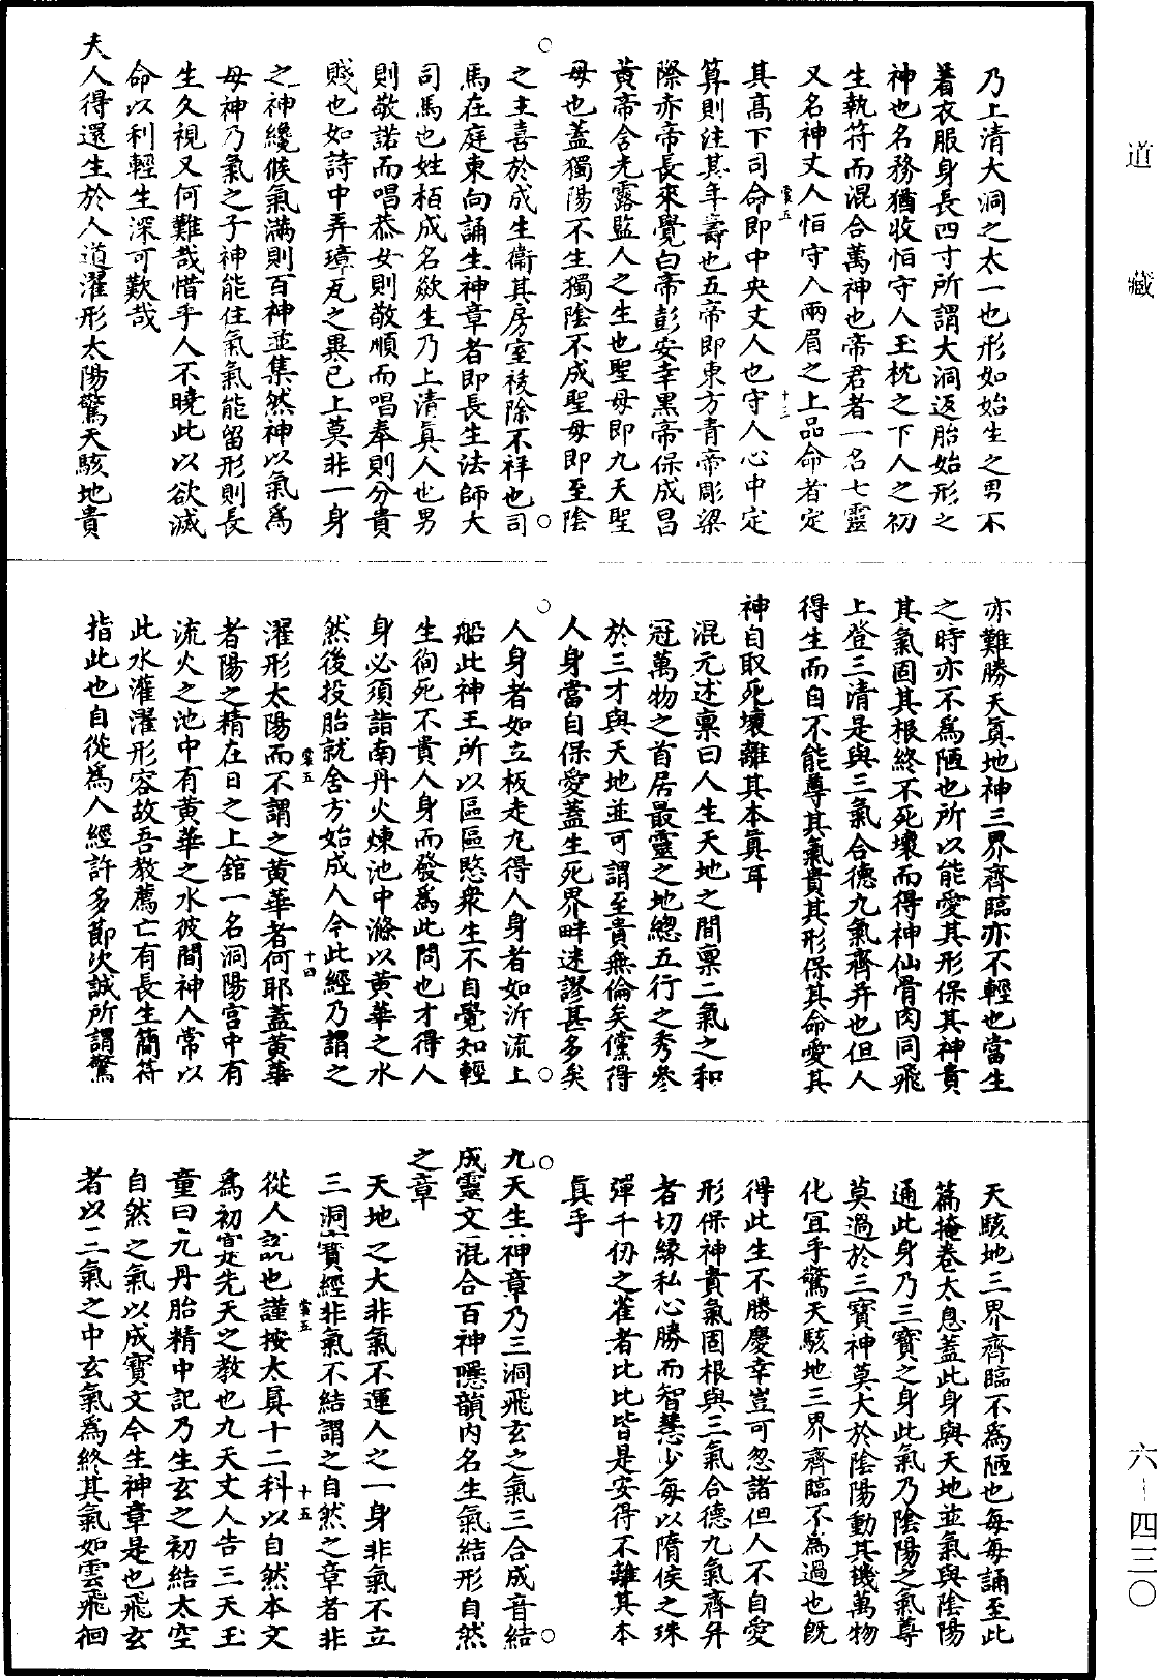 道藏
乃上清大洞之太一也形如始生之男不
著衣服身長四寸所謂大洞返胎始形之
神也名務猶收恒守人玉枕之下人之初
生執符而混合萬神也帝君者一名七靈
又名神丈人恒守人兩眉之上品命者定
其高下司命即中央丈人也守人心中定
算則注其年壽也五帝即東方青帝彫梁
際赤帝長來覺白帝彭安幸黑帝保成昌
黃帝含光露監人之生也聖母即九天聖
母也蓋獨陽不生獨陰不成聖母即至陰
之主喜於成生衛其房室祓除不祥也司
馬在庭東向誦生神章者即長生法師大
司馬也姓栢成名欻生乃上清真人也男
則敬諾而唱恭女則敬順而唱奉則分貴
賤也如詩中弄璋瓦之異已上莫非一身
之神纔候氣滿則百神並集然神以氣爲
母神乃氣之子神能住氣氣能留形則長
生久視又何難哉惜乎人不曉此以欲滅
命以利輕生深可歎哉
夫人得還生於人道濯形太陽驚天駭地貴
亦難勝天真地神三界齊臨亦不輕也當生
之時亦不爲陋也所以能愛其形保其神貴
其氣固其根終不死壞而得神仙骨肉同飛
上登三清是與三氣合德九氣齊并也但人
得生而自不能尊其氣貴其形保其命愛其
神自取死壞離其本真耳
混元述禀曰人生天地之間禀二氣之和
冠萬物之首居最靈之地總五行之秀叅
於三才與天地並可謂至貴無倫矣儻得
人身當自保愛蓋生死界畔迷謬甚多矣
人身者如立板走九得人身者如泝流上
船此神王所以區區愍衆生不自覺知輕
生徇死不貴人身而發爲此問也才得人
身必須詣南丹火煉池中滌以黃華之水
然後投胎就舍方始成人今此經乃謂之
濯形太陽而不謂之黃華者何耶蓋黃華
者陽之精在日之上舘一名洞陽宮中有
流火之池中有黃華之水彼間神人常以
此水灌濯形容故吾教薦亡有長生簡符
指此也自從爲人經許多節次誠所謂驚
天駭地三界齊臨不爲陋也每每誦至此
篇掩卷太息蓋此身與天地並氣與陰陽
通此身乃三寶之身此氣乃陰陽之氣尊
莫過於三寶神莫大於陰陽動其機萬物
化宜乎驚天駭地三界齊臨不為過也旣
得此生不勝慶幸豈可忽諸但人不自愛
形保神貴氣固根與三氣合德九氣齊并
者切緣私心勝而智慧少每以隋侯之珠
彈千仞之雀者比比皆是安得不離其本
真乎
九天生神章乃三洞飛玄之氣三合成音結
成靈文混合百神隱韻内名生氣結形自然
之章
天地之大非氣不運人之一身非氣不立
三洞寶經非氣不結謂之自然之章者非
從人說也謹按太真十二科以自然本文
爲初寔先天之教也九天丈人告三天玉
童曰九丹胎精中記乃生玄之初結太空
自然之氣以成寶文今生神章是也飛玄
者以二氣之中玄氣爲終其氣如雲飛徊
六-四三〇